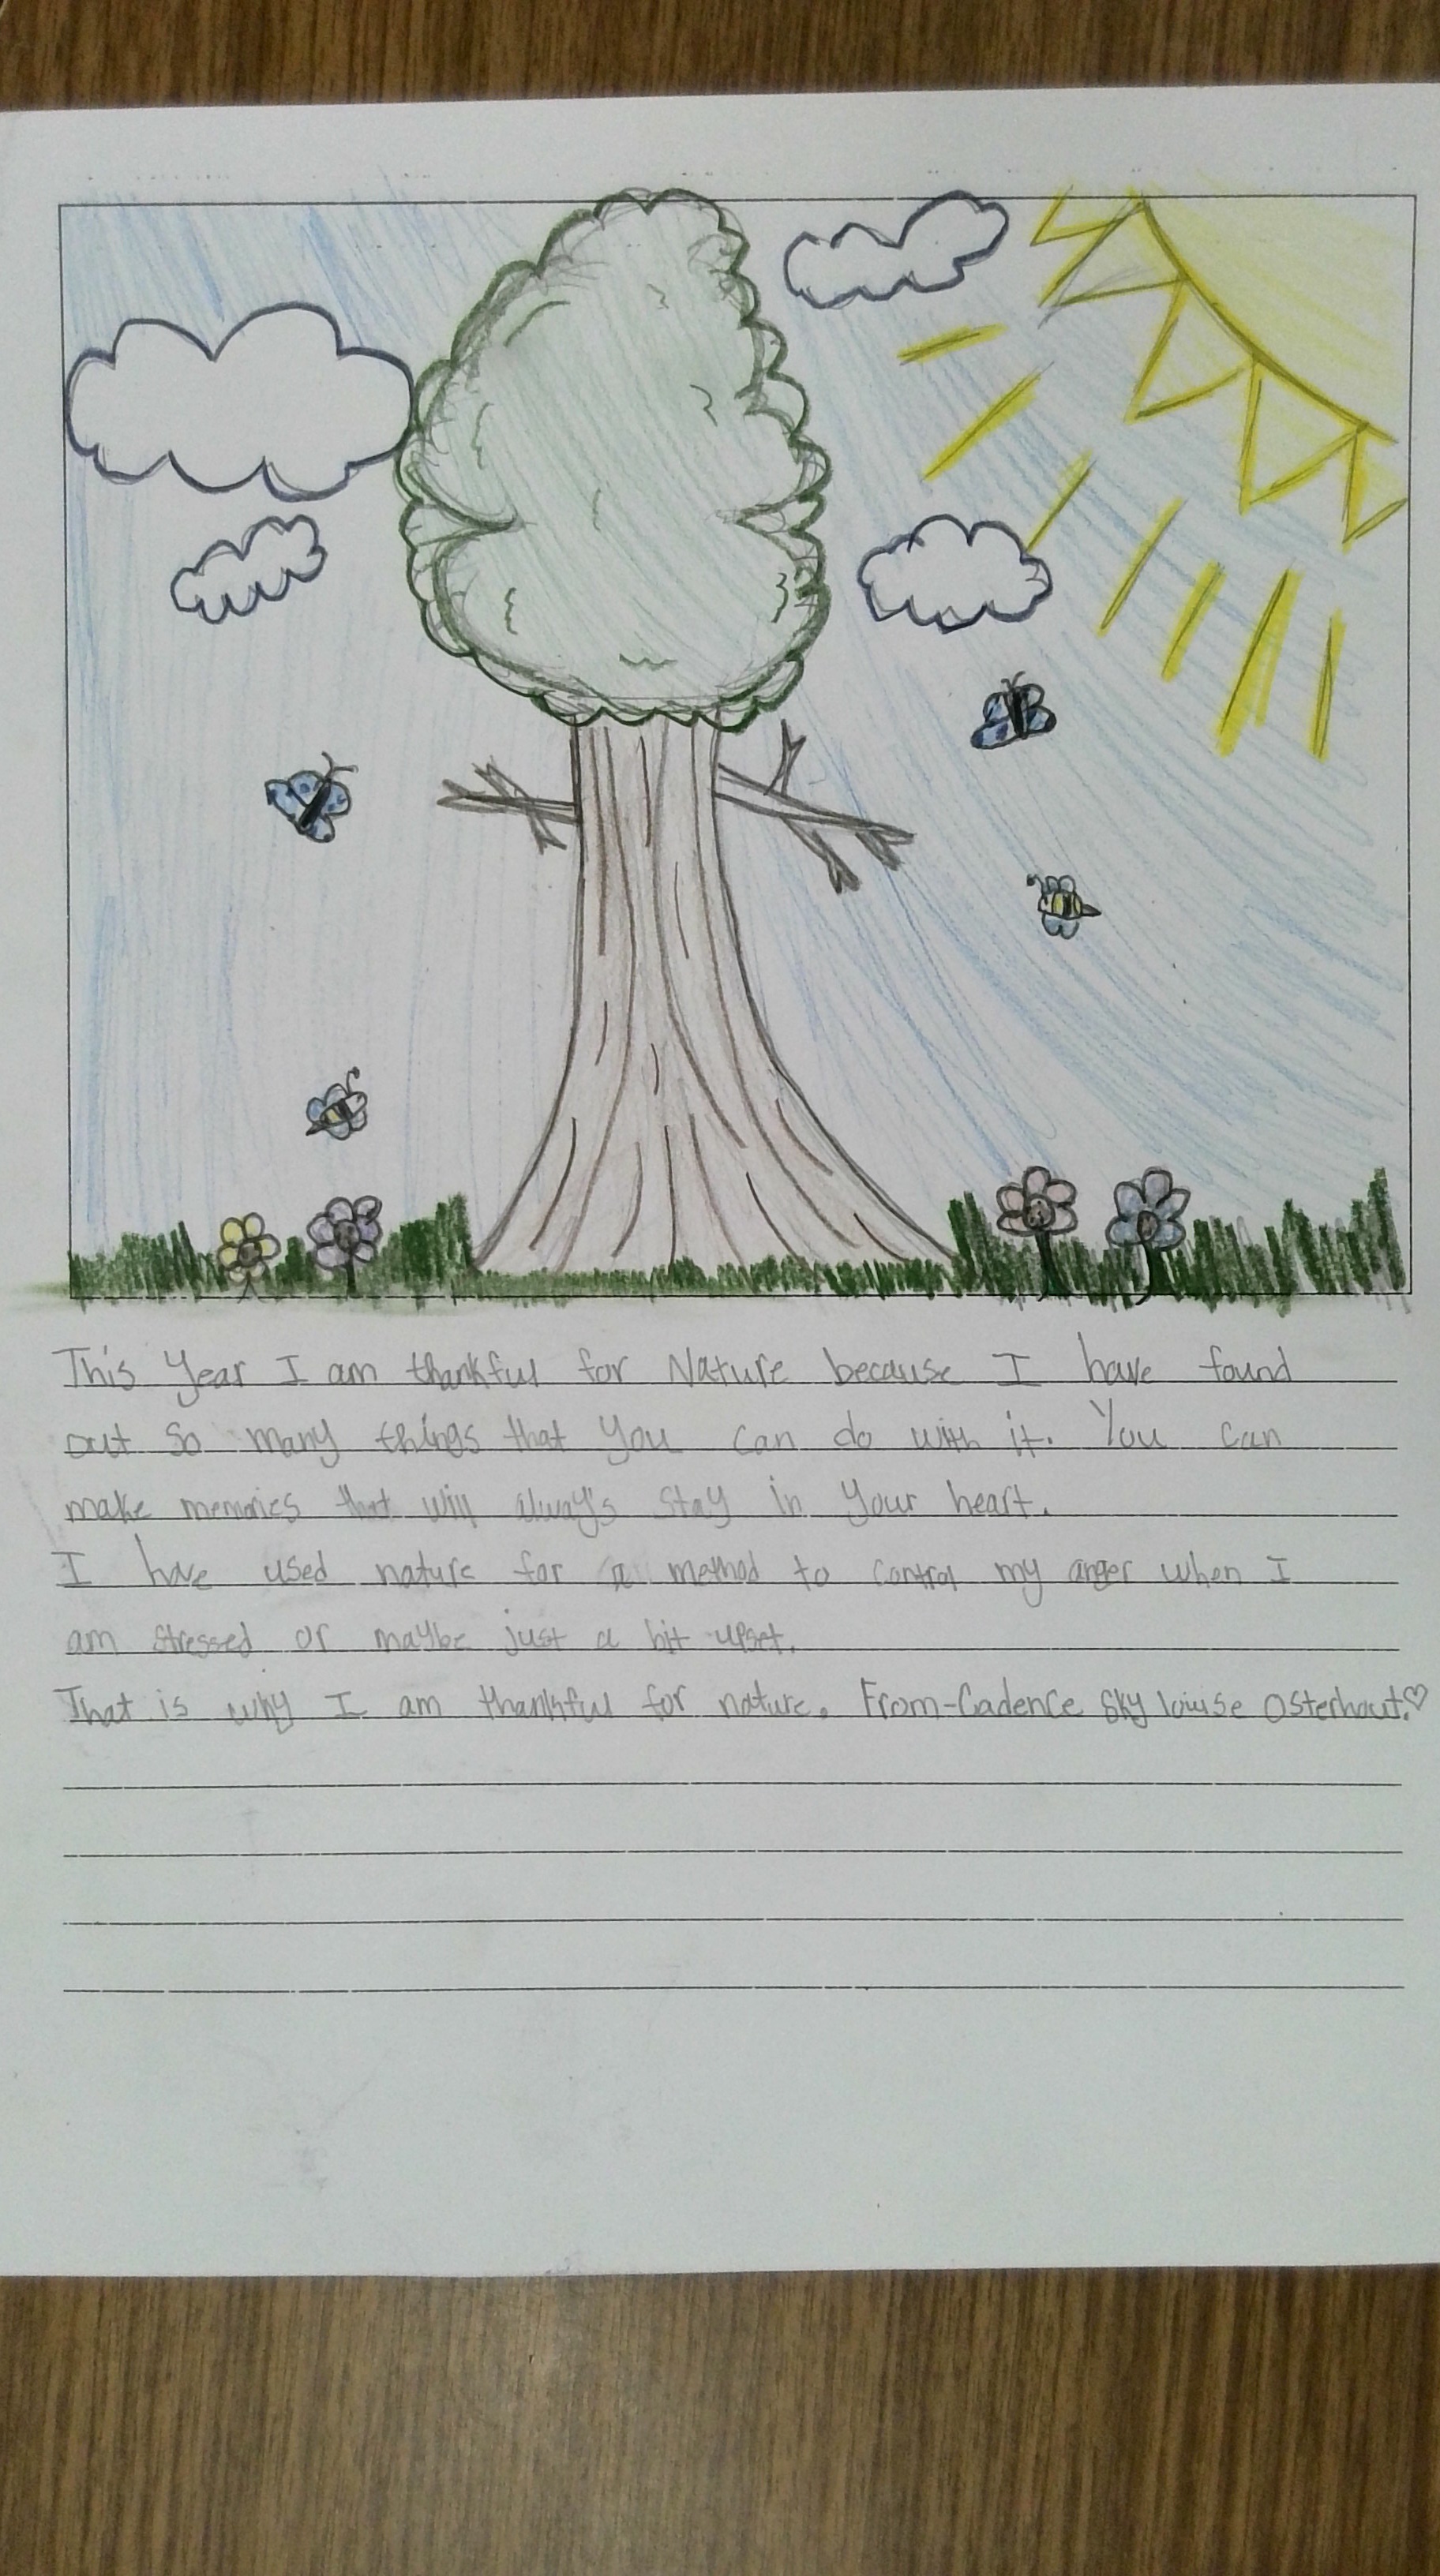 This Year I am thankful for Nature because I have found
out so many things that you can do with it. You can
make memories that will always stay in your heart.
I have used nature for a method to control my anger when I
am stressed or maybe just a bit upset.
That is why I am thankful for nature. From-Cadence Sky louise Osterhout.♡